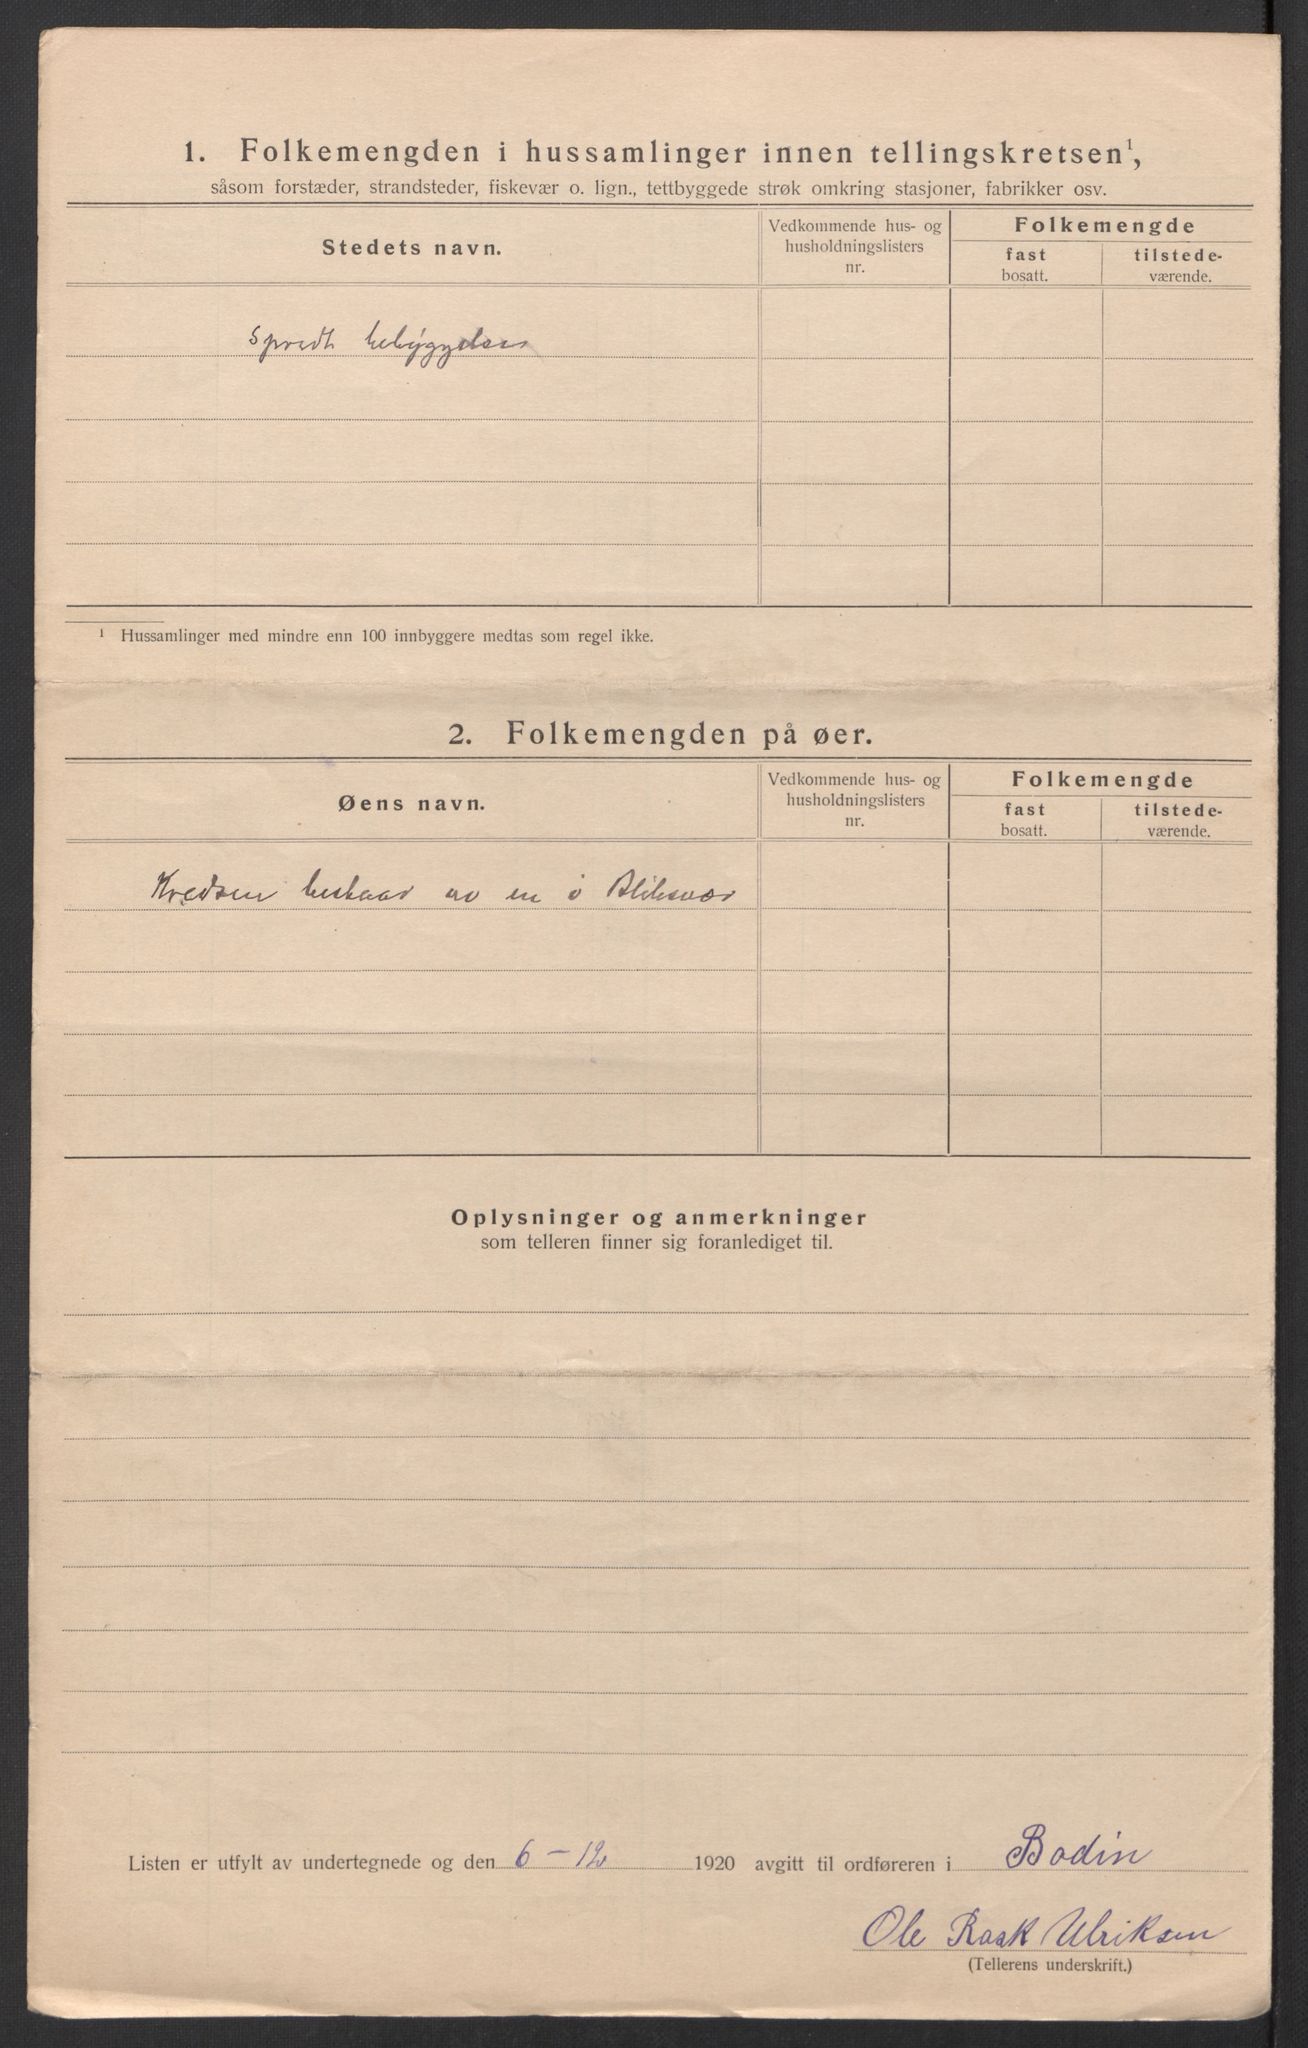 1. Folkemengden i hussamlinger innen tellingskretsen¹,
såsom forstæder, strandsteder, fiskevær o. lign., tettbyggede strøk omkring stasjoner, fabrikker osv.
Stedets navn.
Vedkommende hus- og
husholdningslisters
nr.
Folkemengde
fast
bosatt.
tilstede-
værende.
Spredt bebyggelse
¹ Hussamlinger med mindre enn 100 innbyggere medtas som regel ikke.
2. Folkemengden på øer.
Øens navn.
Vedkommende hus- og
husholdningslisters
nr.
Folkemengde
fast
bosatt.
tilstede-
værende.
Kredsen bestaar av en ö Bliksvær
Oplysninger og anmerkninger
som telleren finner sig foranlediget til.
Listen er utfylt av undertegnede og den 6 – 12 1920 avgitt til ordføreren i Bodin
Ole Rask Ulriksen
(Tellerens underskrift.)